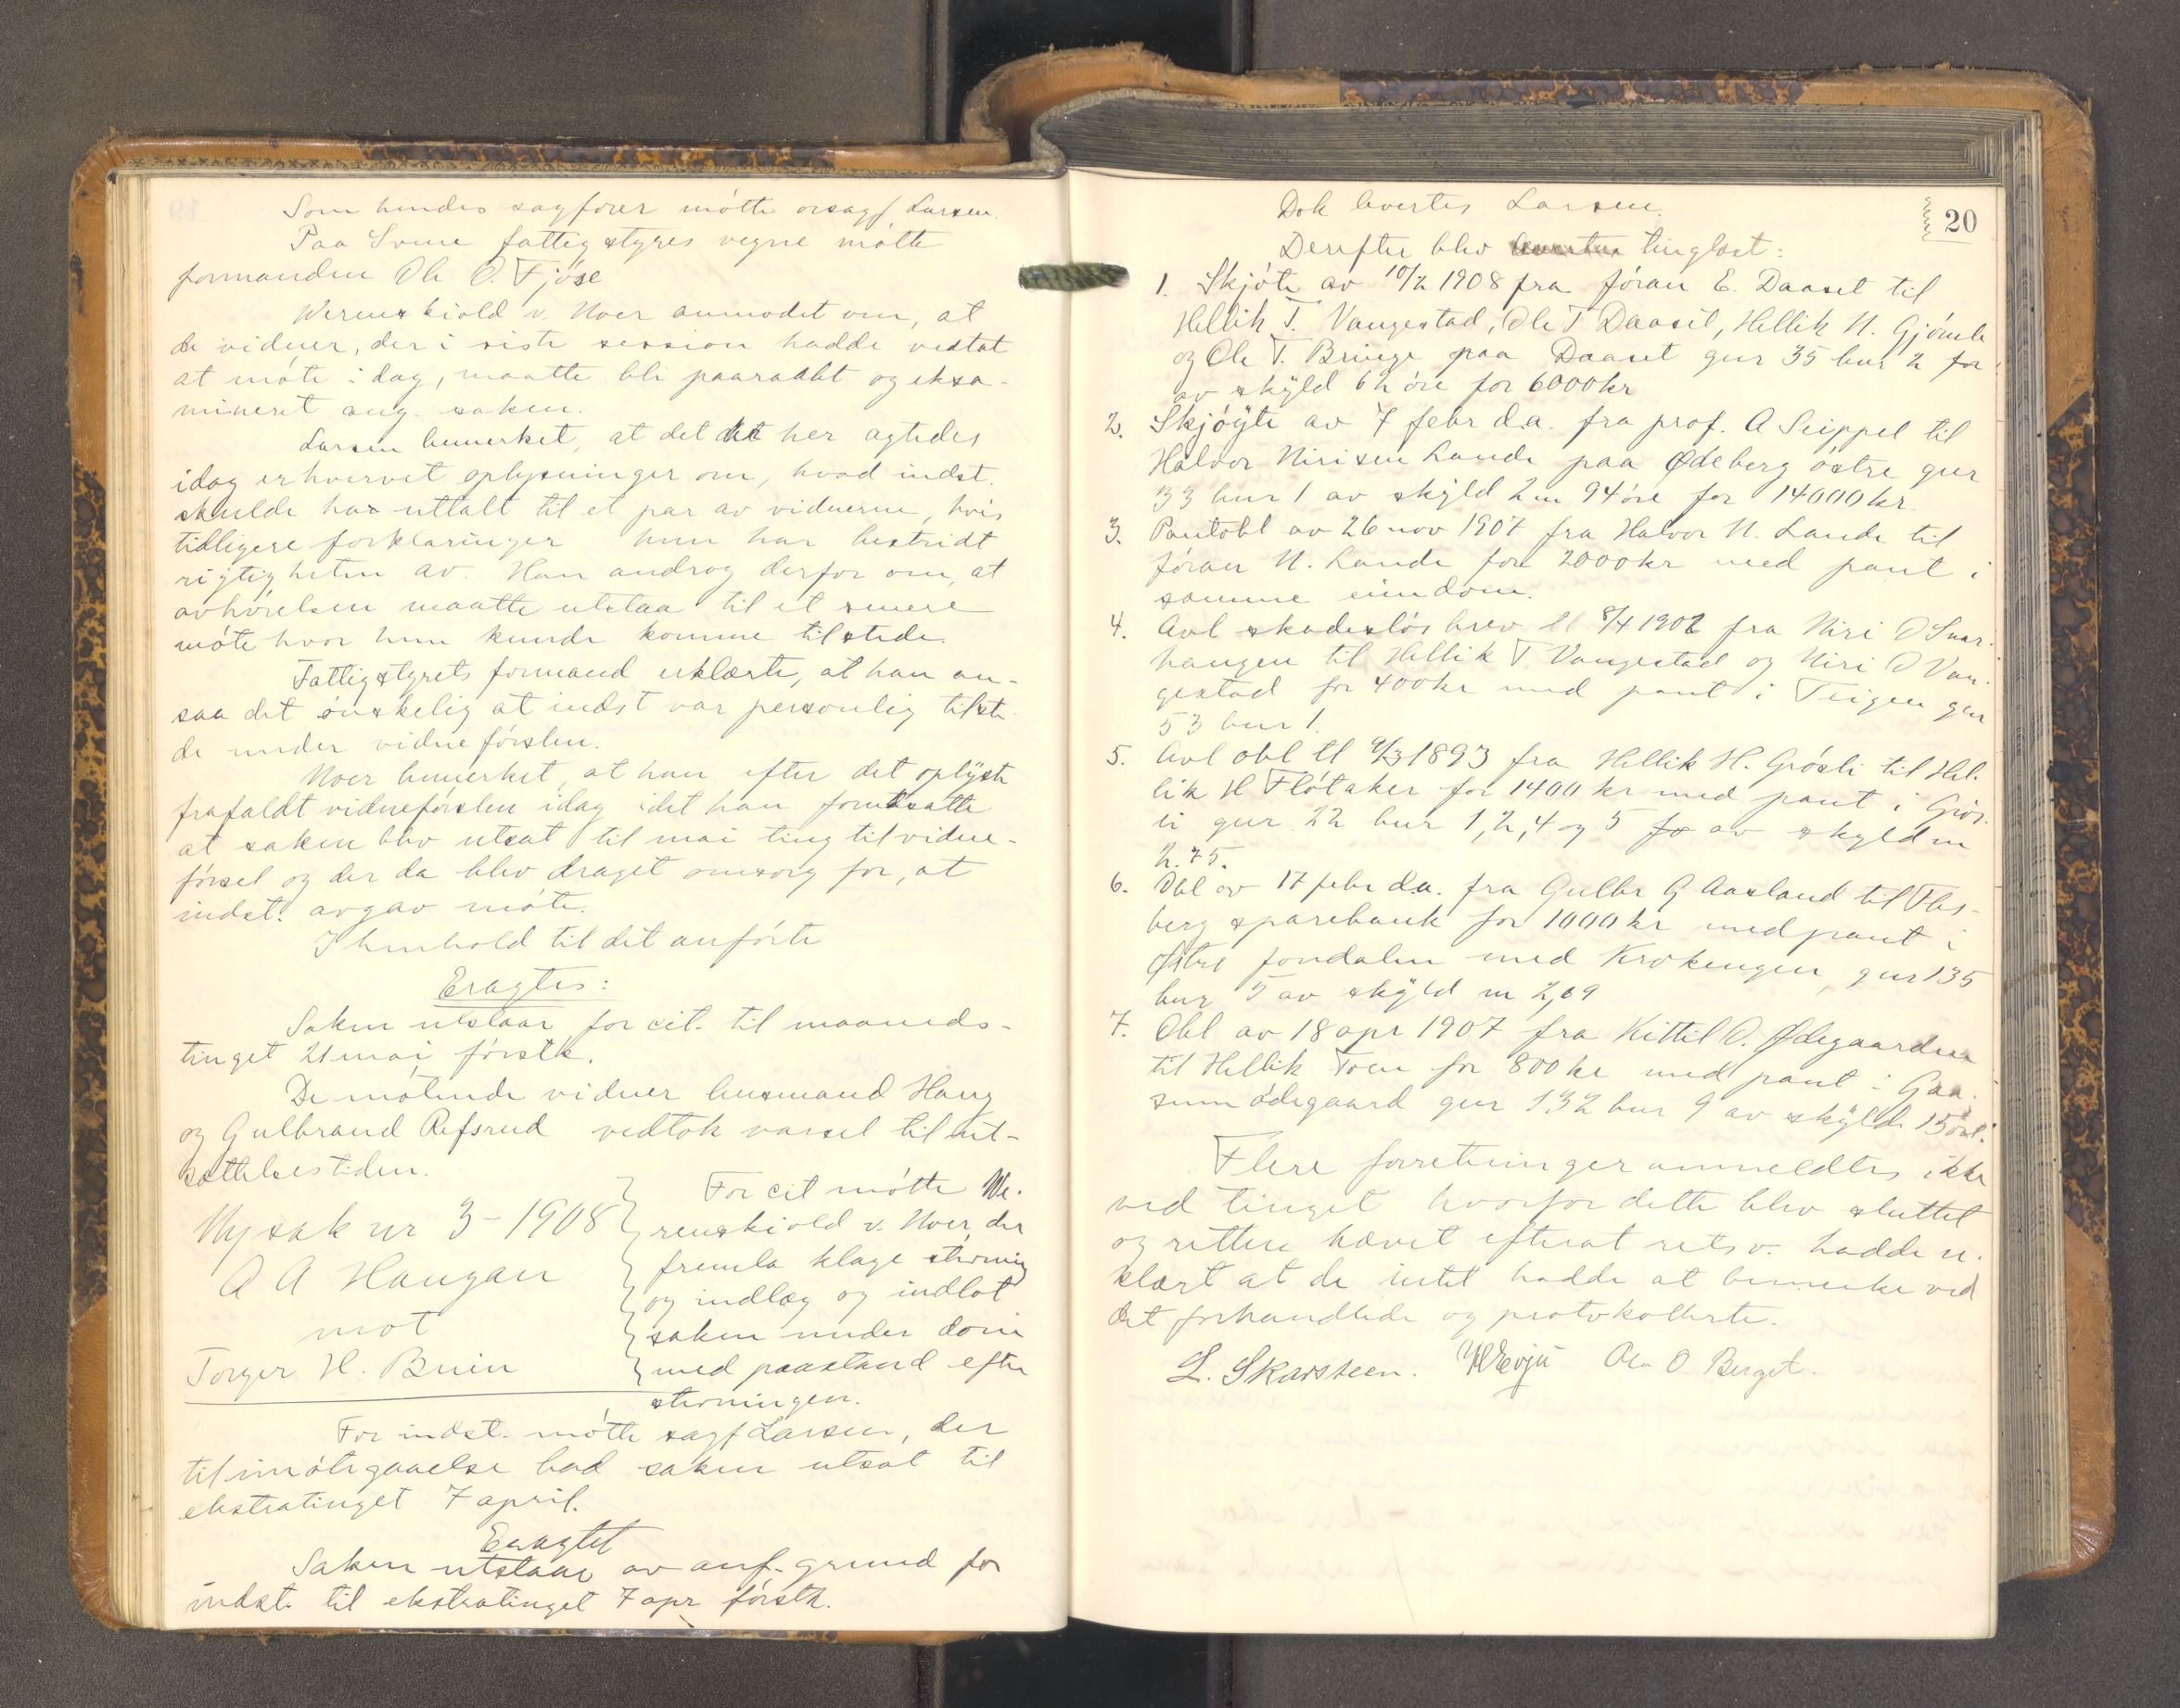 Som hendes sagfører møtte orsagf Larsen.
Paa Svene fattigstyres vegne møtte
formanden Ole O. Fjøse
Werenskiold v. Noer anmodet om, at
de vidner, der i siste session hadde vedtat
at møte idag, maatte bli paaraabt og eksa-
mineret ang. saken.
Larsen bemerket, at det her agtedes
idag erhvervet oplysninger om, hvad indst.
skulde ha uttalt til et par av vidnerne, hvis
tidligere forklaringer hun har bestridt
rigtigheten av. Han androg derfor om, at
avhørelsen maatte utstaa til et senere
møte hvor hun kunde komme tilstede.
Fattigstyrets formand erklærte, at han an-
saa det ønskelig at indst var personlig tilste-
de under vidneførslen.
Noer bemerket, at han efter det oplyste
frafaldt vidneførslen idag idet han forutsatte
at saken blev utsat til mai ting til vidne-
førsel og der da blev draget omsorg for, at
indst. avgav møte.
I henhold til det anførte
Eragtes:
Saken utstaar for cit. til maaneds-
tinget 21 mai førstk.
De møtende vidner husmand Haug
og Gulbrand Refsrud vedtok varsel til ut-
sættelsestiden.
Ny sak nr 3 - 1908
A A Haugan
mot
Torger H. Bruin
For cit møtte We-
renskiold v. Noer, der
fremla klage stevning
og indlæg og indlot
saken under dom
med paastand efter
stevningen.
For indst. møtte sagf Larsen, der
til imøtegaaelse bad saken utsat til
ekstratinget 7 april.
Eragtet
Saken utstaar av anf. grund for
indst. til ekstratinget 7 apr førstk.
20
Dok levertes Larsen.
Derefter blev tinglæst:
1. Skjøte av 10/2 1908 fra Jøran E. Daaset til
Hellik T. Vangestad, Ole T Daaset, Hellik N. Gjømle
og Ole T. Bringe paa Daaset gnr 35 bnr 2 for
av skyld 62 øre for 6000 kr
2. Skjøyte av 7 febr d.a. fra prof. A Seippel til
Halvor Nirisen Lande paa Ødeberg østre gnr
33 bnr 1 av skyld 2 m 94 øre for 14000 kr.
3. Pantobl av 26 nov 1907 fra Halvor N. Lande til
Jøran N. Lande for 2000 kr med pant i
samme eiendom.
4. Avl skadesløsbrev tl 8/4 1902 fra Niri O Snar-
haugen til Hellik T Vangestad og Niri O Van-
gestad for 400 kr med pant i Teigen gnr
53 bnr 1.
5. Avl obl tl 9/3 1893 fra Hellik H. Grøsli til Hel-
lik H Fløtaker for 1400 kr med pant i Grøs-
li gnr 22 bnr 1, 2, 4 og 5 av skyld m
2.75.
6. Obl av 17 febr d.a. fra Gulbr G Aasland til Fles-
berg sparebank for 1000 kr med pant i
Østre Jondalen med Krokengen, gnr 135
bnr 5 av skyld m 2,69
7. Obl av 18 apr 1907 fra Kittil O. Ødegaarden
til Hellik Toen for 800 kr med pant i Gaa-
sumødegaard gnr 132 bnr 9 av skyld 15 øre.
Flere forretninger anmeldtes ikke
ved tinget hvorfor dette blev sluttet
og retten hævet efterat retsv. hadde er-
klært at de intet hadde at bemerke ved
det forhandlede og protokollerte.
L. Skarsteen. Ola O. Berget.